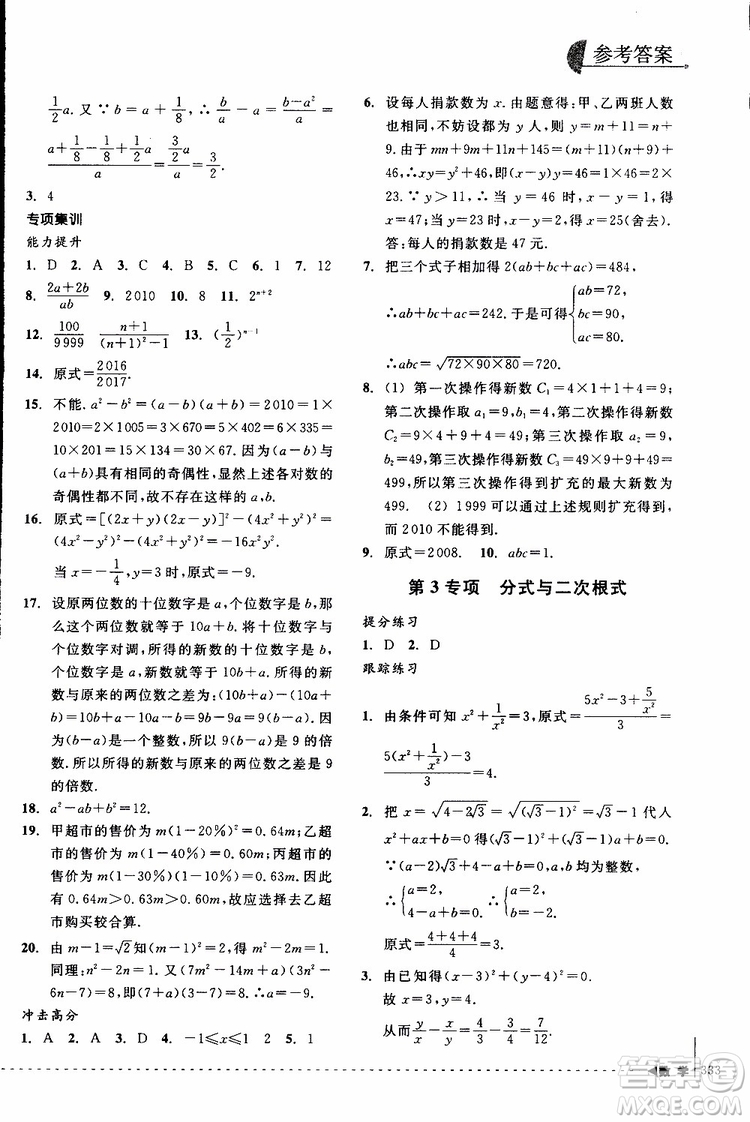 参考答案
1/2 a. 又∵b=a+1/8,∴b/a-a=(b-a²)/a=
(a+1/8-1/8+1/2 a)/a=(3/2 a)/a=3/2.
3. 4
专项集训
能力提升
1. D 2. A 3. C 4. D 5. C 6. 1 7. 12
8. (2a+2b)/ab 9. 2010 10. 8 11. 2ⁿ⁺²
12. 100/9999 (n+1)/((n+1)²-1) 13. (1/2)ⁿ
14. 原式=2016/2017.
15. 不能. a²-b²=(a-b)(a+b)=2010=1×
2010=2×1005=3×670=5×402=6×335
=10×201=15×134=30×67. 因为(a-b)与
(a+b)具有相同的奇偶性,而上述各对数的
奇偶性都不同,故a、b不存在.
16. 原式=[(2x+y)(2x-y)]²-(4x²+y²)²=
(4x²-y²)²-(4x²+y²)²=-16x²y².
当x=-1/4,y=3时,原式=-9.
17. 设原两位数的十位数字是a,个位数字是b,那
么这个两位数就等于10a+b. 将十位数字与
个位数字对调,所得的新数的十位数字是b,
个位数字是a,新数就等于10b+a. 所得的新
数与原来的两位数之差为:(10b+a)-(10a+
b)=10b+a-10a-b=9b-9a=9(b-a). 因
为(b-a)是一个整数,所以9(b-a)是9的倍
数. 所以所得的新数与原来的两位数之差是9
的倍数.
18. a²-ab+b²=12.
19. 甲超市的售价为m(1-20%)²=0.64m;乙超
市的售价为m(1-40%)=0.6m;丙超市的售
价为m(1-30%)(1-10%)=0.63m. 因
为0.64m>0.63m>0.6m,故应选择去乙超
市购买较合算.
20. 由m-1=√2知(m-1)²=2,即m²-2m=1,
同理:n²-2n=1. ∵(7m²-14m+a)(3n²-
6n-7)=8. ∴(7+a)(3-7)=8. ∴a=-9.
冲击高分
1. A 2. A 3. D 4. -1≤x≤1 5. 1
6. 设每人捐款数为x. 由题意得:甲、乙两班人数
也相同,不妨设都为y人,则y=m+11=n+
9. 由于mn+9m+11n+145=(m+11)(n+9)+
46,∴xy=y²+46,即(x-y)y=46=1×46=2×
23. ∵y>11,当y=46时,x-y=1,∴x=47;
当y=23时,x-y=2,此时x=25(舍去).
答:每人的捐款数是47元.
7. 把三个式子相加得2(ab+bc+ac)=484,
∴ab+bc+ac=242. 于是可得{ab=72, bc=90, ac=80.
∴abc=√(72×90×80)=720.
8. (1) 第一次操作得新数C₁=4×1+1+4=9;
第二次操作取a₁=9,b₁=4,同样操作得新数
C₂=9×4+9+4=49;第三次操作取a₂=49,
b₂=9,同样操作得新数C₃=49×9+49+9=
499. 所以按上述规则操作得到扩充的最大数为
499. (2) 1999可以通过上述规则扩充得到,
而2010不能得到.
9. 原式=2008. 10. abc=1.
第3专项 分式与二次根式
提分练习
1. D 2. D
跟踪练习
1. 由条件可知x²+1/x²=3,原式=(5x²-3+5/x²)/3=
(5(x²+1/x²)-3)/3=4.
2. 把x=√(4-2√3)=√((√3-1)²)=√3-1代入
x²+ax+b=0得(√3-1)²+a(√3-1)+b=0.
∵(a-2)√3+4-a+b=0,a、b均为整数.
∴{a=2, 4-a+b=0. ∴{a=2, b=-2.
原式=(4+4+4)/4=3.
3. 由已知得(x-3)²+(y-4)²=0.
故x=3,y=4.
从而y/x-x/y=4/3-3/4=7/12.
数 学 333
答案圈
MXQE.COM